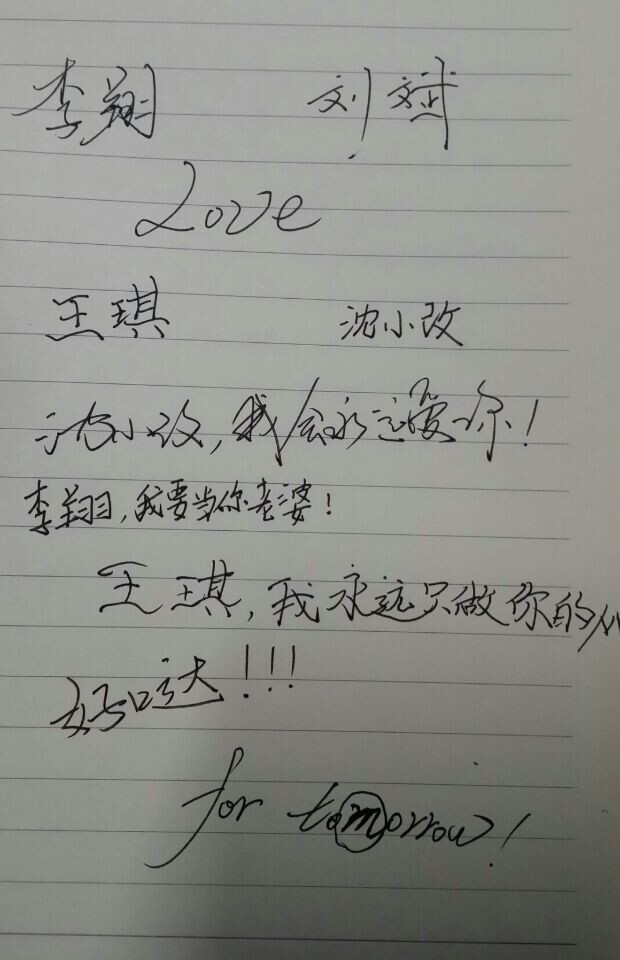 李翔 刘斌
Love
王琪 沈小改
沈小改,我会永远爱你!
李翔,我要当你老婆!
王琪,我永远只做你的小
好哒!!!
for tomorrow!